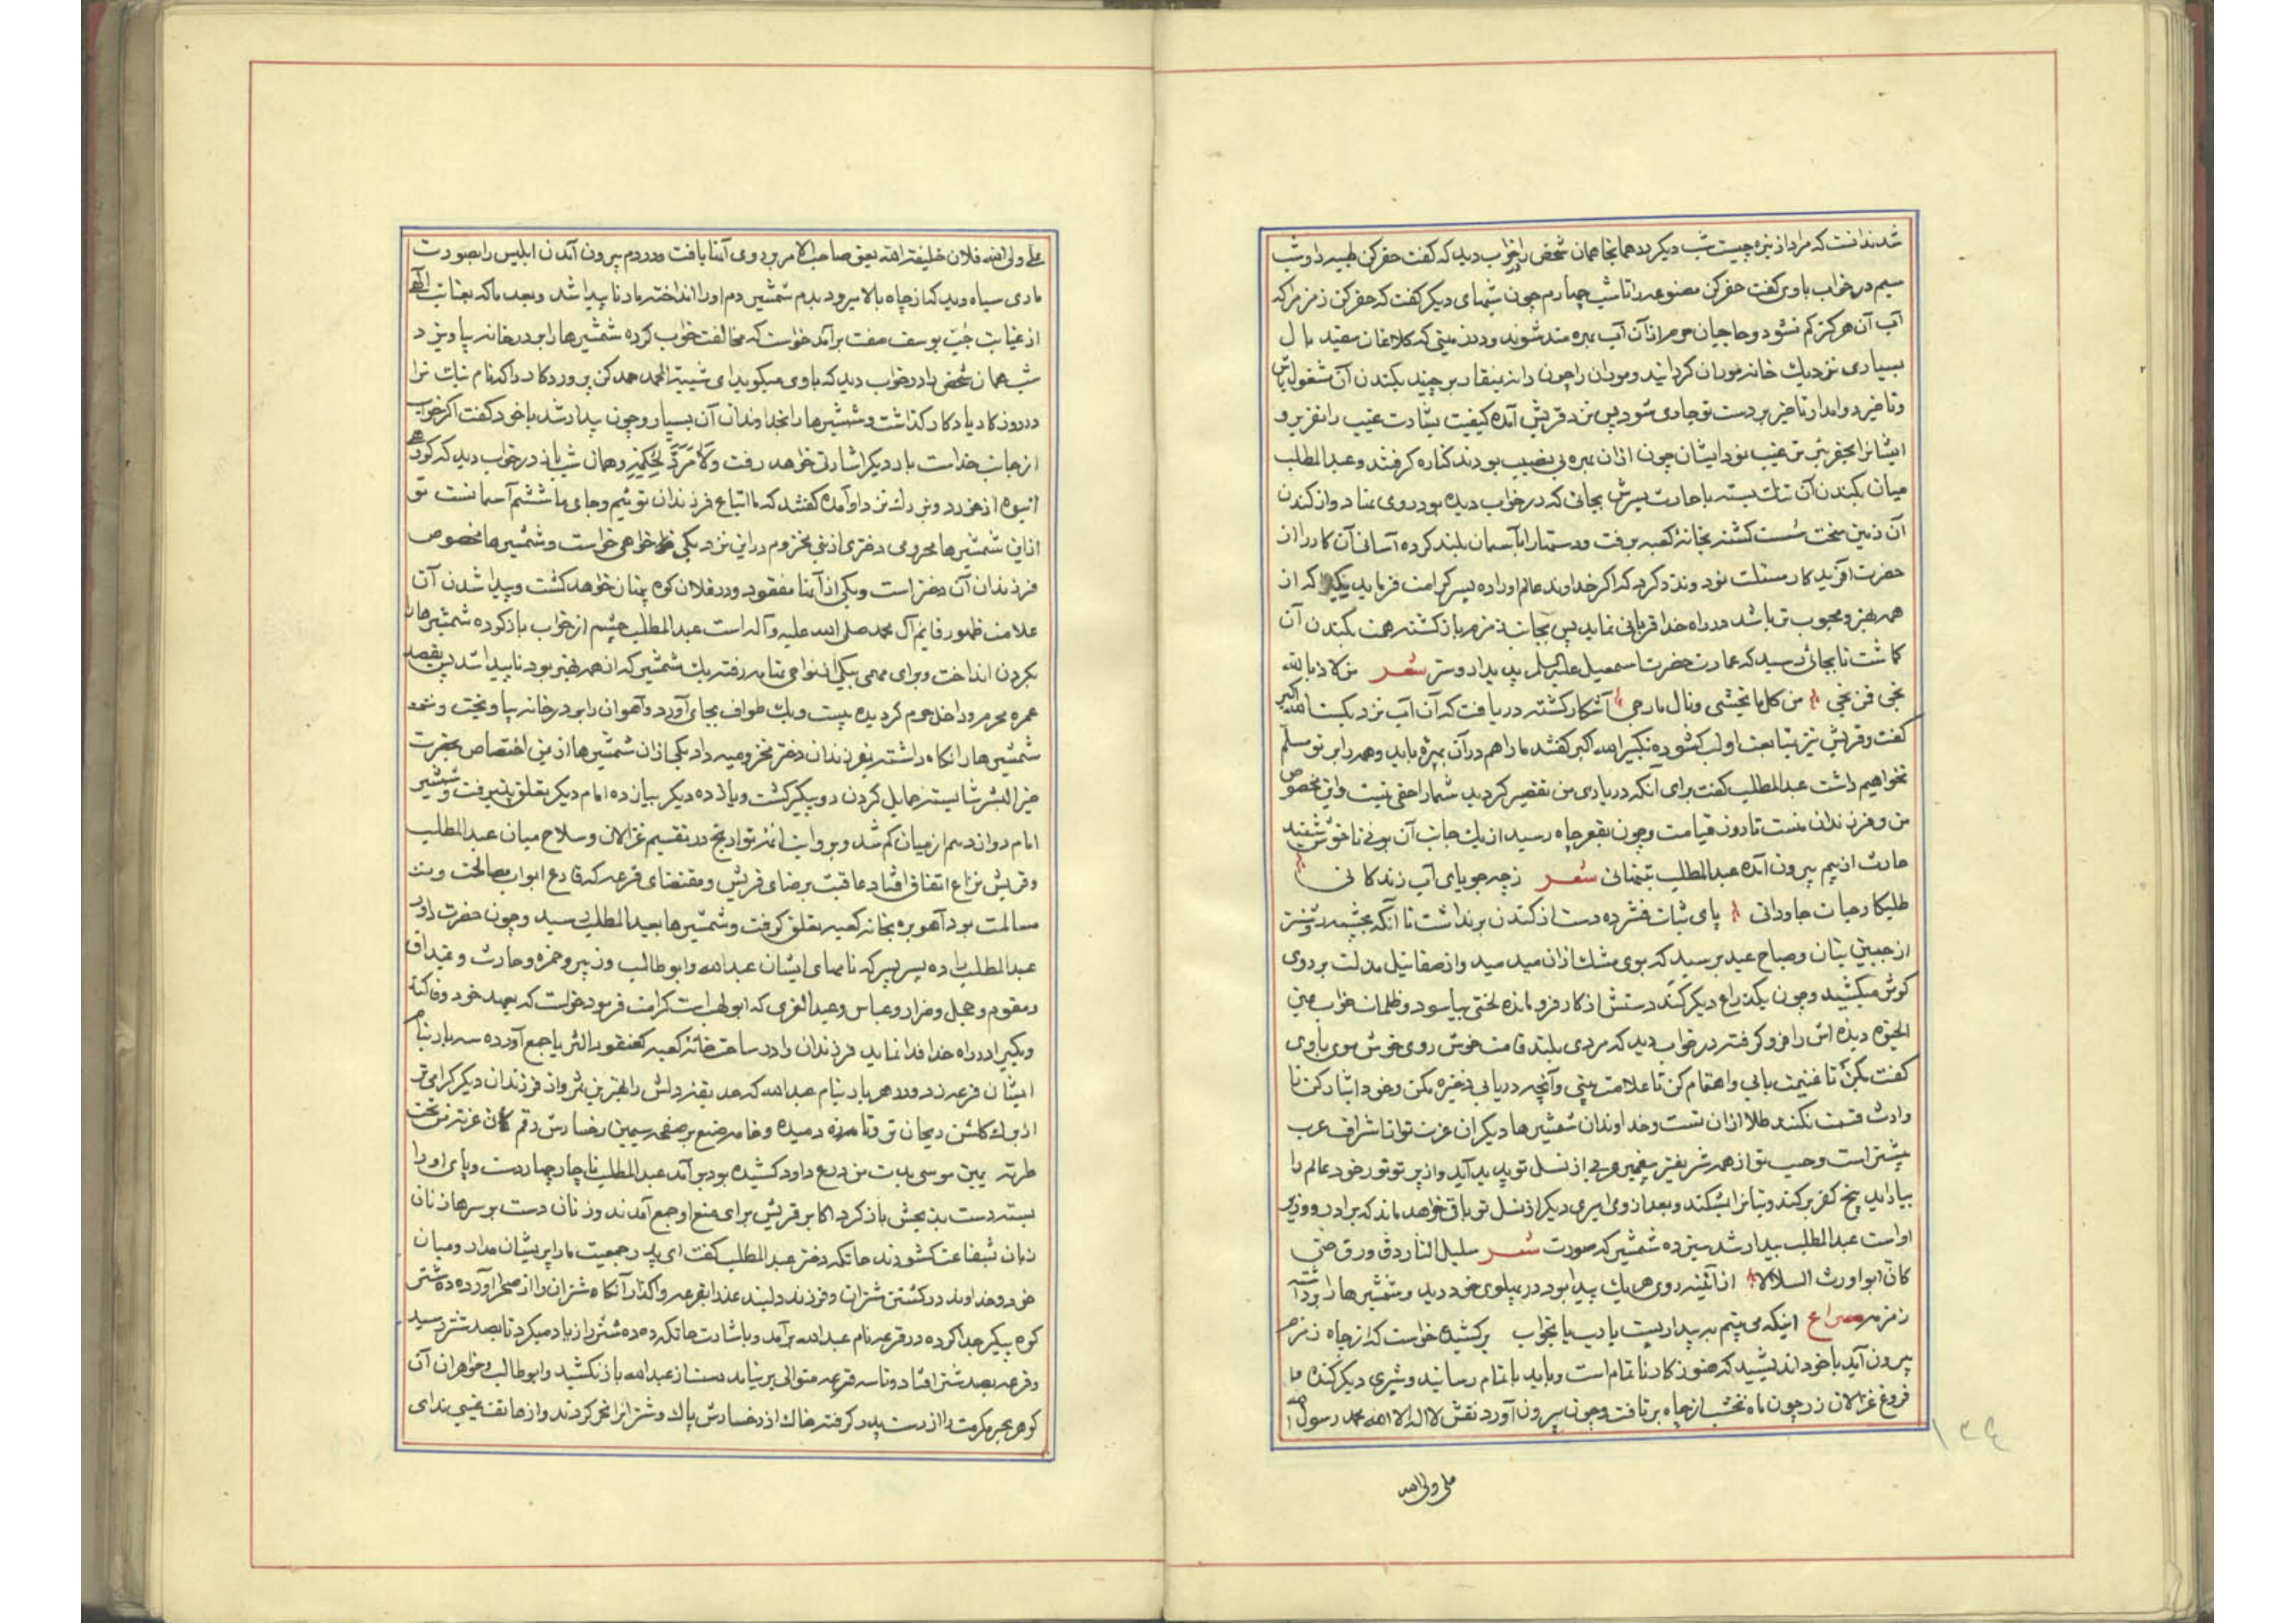 شد ندانست که مراد از بره چیست شب دیگر در همانجا همان شخص را بخواب دید که گفت حفر کن طیبه را و شب
سیم در خواب باوی گفت حفر کن مصنوعه را تا شب چهارم چون شبهای دیگر گفت که حفر کن زمزم را که
آب آن هرگز کم نشود و حاجیان حرم از آن آب بهره مند شوند و در زمینی که کلاغان سفید بال
بسیاری نزدیک خانه موران گردانید و موران را چون دانه بمنقار برچیند بکندن آن مشغول باش
و تاخیر روا مدار تا خیر بر دست تو جاری شود پس نزد قریش آمده کیفیت بشارت غیب را تقریر و
ایشانرا بحفر بئر ترغیب نمود ایشان چون از آن بهره بی نصیب بودند کناره گرفتند و عبدالمطلب
میان بکندن آن تنگ بسته با حارث پسرش بجائی که در خواب دیده بود روی نهاد و از کندن
آن زمین سخت سست گشته بخانهٔ کعبه برفت و دستها را بآسمان بلند کرده آسانی آن کار را از
حضرت آفریدگار مسئلت نمود و نذر کرد که اگر خداوند عالم او را ده پسر کرامت فرماید یکی را که از
همه بهتر و محبوب تر باشد در راه خدا قربانی نماید پس بجانب زمزم بازگشته همت بکندن آن
گماشت تا بجائی رسید که عمارت حضرت اسمعیل علیه السلم پدیدار و ستر شعر من لاذ بالله
نجی فن نجی من کل ما یخشی ونال ما رجی آشکار گشته دریافت که آن آب نزدیکست الله اکبر
گفت و قریش نیز بمتابعت او لب گشوده بتکبیر الله اکبر گفتند ما را هم در آن بهره باید و همه را بر تو مسلم
نخواهیم داشت عبدالمطلب گفت برای آنکه در یاری من تقصیر کردید شما را حقی نیست و این مخصوص
من و فرزندان منست تا روز قیامت و چون بقعر چاه رسید از یک جانب آن بوئی ناخوش شنفتند
حارث از بیم بیرون آمده عبدالمطلب بتنهائی شعر ز چه جویای آب زندگانی
طلبکار حیات جاودانی پای ثبات فشرده دست از کندن برنداشت تا آنکه بچشمه روشنتر
از جبین بتان و صباح عید برسید که بوی مشک از آن میدمید و از صفا تیل مدلت بر روی
کوثر میکشید و چون یکذراع دیگر کند دستش از کار فرو مانده لختی بیاسود و ظلمات خواب عین
الحیوة دیده اش را فرو گرفته در خواب دید که مردی بلند قامت خوش روی خوش موی باوی
گفت بکن تا غنیمت یابی و اهتمام کن تا علامت بینی و آنچه دریابی ذخیره مکن و خود ایثار کن تا
وارث قسمت نکند طلا از آن تست و خداوندان شمشیرها دیگران عزت تو از اشراف عرب
بیشتر است و حسب تو از همه شریفتر پیغمبر عربی از نسل تو پدید آید و از پرتو نور خود عالم را
بیاراید بیخ کفر برکند و بتانرا بشکند و بعد از وی امیری دیگر از نسل تو باقی خواهد ماند که برادر و وزیر
اواست عبدالمطلب بیدار شد سیزده شمشیر که صورت شعر سلیل النار دق ورق حتی
کان ابواورث السلالا از آئینه روی هر یک پیدا بود در پهلوی خود دید و شمشیرها را برداشته
زمزمه مصراع اینکه می بینم به بیداریست یا رب یا بخواب برکشیده خواست که از چاه زمزم
بیرون آید با خود اندیشید که هنوز کار ناتمام است و باید باتمام رسانید و شبری دیگر کنده
فروغ غزالان زر چون ماه نخشب از چاه برتافت و چون بیرون آورد نقش لا اله الا الله محمد رسول الله
علی ولی الله
۱۳۴
علی ولی الله فلان خلیفة الله یعنی صاحب الامر بر روی آنها یافت و در دم بیرون آمدن ابلیس را بصورت
ماری سیاه دید که از چاه بالا میرود بدم شمشیر دم او را انداخته مار ناپیدا شد و بعد ما که بعنایت الهی
از غیابت جب یوسف صفت برآمد خواست که مخالفت خواب کرده شمشیرها را بر در خانه بیاویزد
شب همان شخص را در خواب دید که باوی میگوید ای شیبة الحمد حمد کن پروردگار را که نام نیک ترا
در روزگار یادگار گذاشت و شمشیرها را بخداوندان آن بسپار و چون بیدار شد با خود گفت اگر خواب
از جانب خداست بار دیگر اشارتی خواهد رفت و لا مرد لحکمه و همان شب باز در خواب دید که گروهی
انبوه از خرد و بزرگ نزد او آمده گفتند که ما اتباع فرزندان توئیم و جای ما ششم آسمانست تو
از این شمشیرها محرومی دختری از بنی مخزوم در این نزدیکی خواهی خواست و شمشیرها مخصوص
فرزندان آن دختر است و یکی از آنها مفقود و در فلان کوه پنهان خواهد گشت و پیدا شدن آن
علامت ظهور قائم آل محمد صلی الله علیه و آله است عبدالمطلب چشم از خواب باز کرده شمشیرها را
بگردن انداخت و برای مهمی بیکی از نواحی تهامه رفته یک شمشیر که از همه بهتر بود ناپیدا شد پس بقصد
عمره محرم و داخل حرم گردیده بیست و یک طواف بجای آورد و آهوان را بر در خانه بیاویخت و شمه
شمشیرها را نگاه داشته بفرزندان دختر مخزومیه داد یکی از آن شمشیرها از یمن اختصاص حضرت
خیر البشر شایسته حمایل کردن دو پیکر گشت و یازده دیگر بیازده امام دیگر تعلق پذیرفت و شمشیر
امام دوازدهم از میان کم شد و بروایت ائمهٔ تواریخ در تقسیم غزالان و سلاح میان عبدالمطلب
و قریش نزاع اتفاق افتاد عاقبت برضای قریش و مقتضای قرعه که قارع ابواب مصالحت و
مسالمت بود آهو بره بخانه کعبه تعلق گرفت و شمشیرها بعبدالمطلب رسید و چون حضرت داور
عبدالمطلب را ده پسر که نامهای ایشان عبدالله و ابوطالب و زبیر و حمزه و حارث و غیداق
و مقوم و حجل و ضرار و عباس و عبدالعزی که ابولهب است کرامت فرمود خواست که بعهد خود وفا کند
و یکی را در راه خدا فدا نماید فرزندان را در ساحت خانه کعبه کعنقود الثریا جمع آورده سه بار بنام
ایشان قرعه زد و در هر بار بنام عبدالله که حدیقه دلش را بهترین ثمر و از فرزندان دیگر گرامی تر
از برگ گلشن ریحان تر و تازه دمیده و خامه صنع بر صفحه سیمین رخسارش رقم
طرته یمین موسی بدت من درع داود کشیده بود برآمد عبدالمطلب ناچار چهار دست و پای او را
بسته دست بذبحش باز کرد اکابر قریش برای منع او جمع آمدند و زنان دست بر سرها زنان
زبان شفاعت گشودند عاتکه دختر عبدالمطلب گفت ای پدر جمعیت ما را پریشان مدار و میان
خود و خداوند در کشتن شتران و فرزند دلبند عذرا بقرعه واگذار آنگاه شتران را از صحرا آورده ده شتر
کوه پیکر جدا کرده در قرعه نام عبدالله برآمد و باشارت عاتکه ده ده شتر را زیاد میکرد تا بصد شتر رسید
و قرعه بصد شتر افتاد و تا سه قرعه متوالی بر نیامد دست از عبدالله باز نکشید و ابوطالب و خواهران آن
گوهر بحر مکرمت را از دست پدر گرفته خاک از رخسارش پاک و شترانرا نحر کردند و از هاتف غیبی ندای